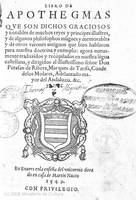 LIBRO DE
APOTHEGMAS
QVE SON DICHOS GRACIOSOS
y notables de muchos reyes y principes illustres,
y de algunos philosophos insignes y memorables
y de otros varones antiguos que bien hablaron
para nuestra doctrina y exemplo: agora nueua-
mente traduzidos y recopilados en nuestra lengua
castellana, y dirigidos al illustrissimo señor Don
Perafan de Ribera, Marques de Tarifa, Conde
delos Molares, Adelantado ma-
yor del Andaluzia. &c.
En Enuers enla enseña del vnicornio dora
do en casa de Martin Nucio
1549.
CON PRIVILEGIO.